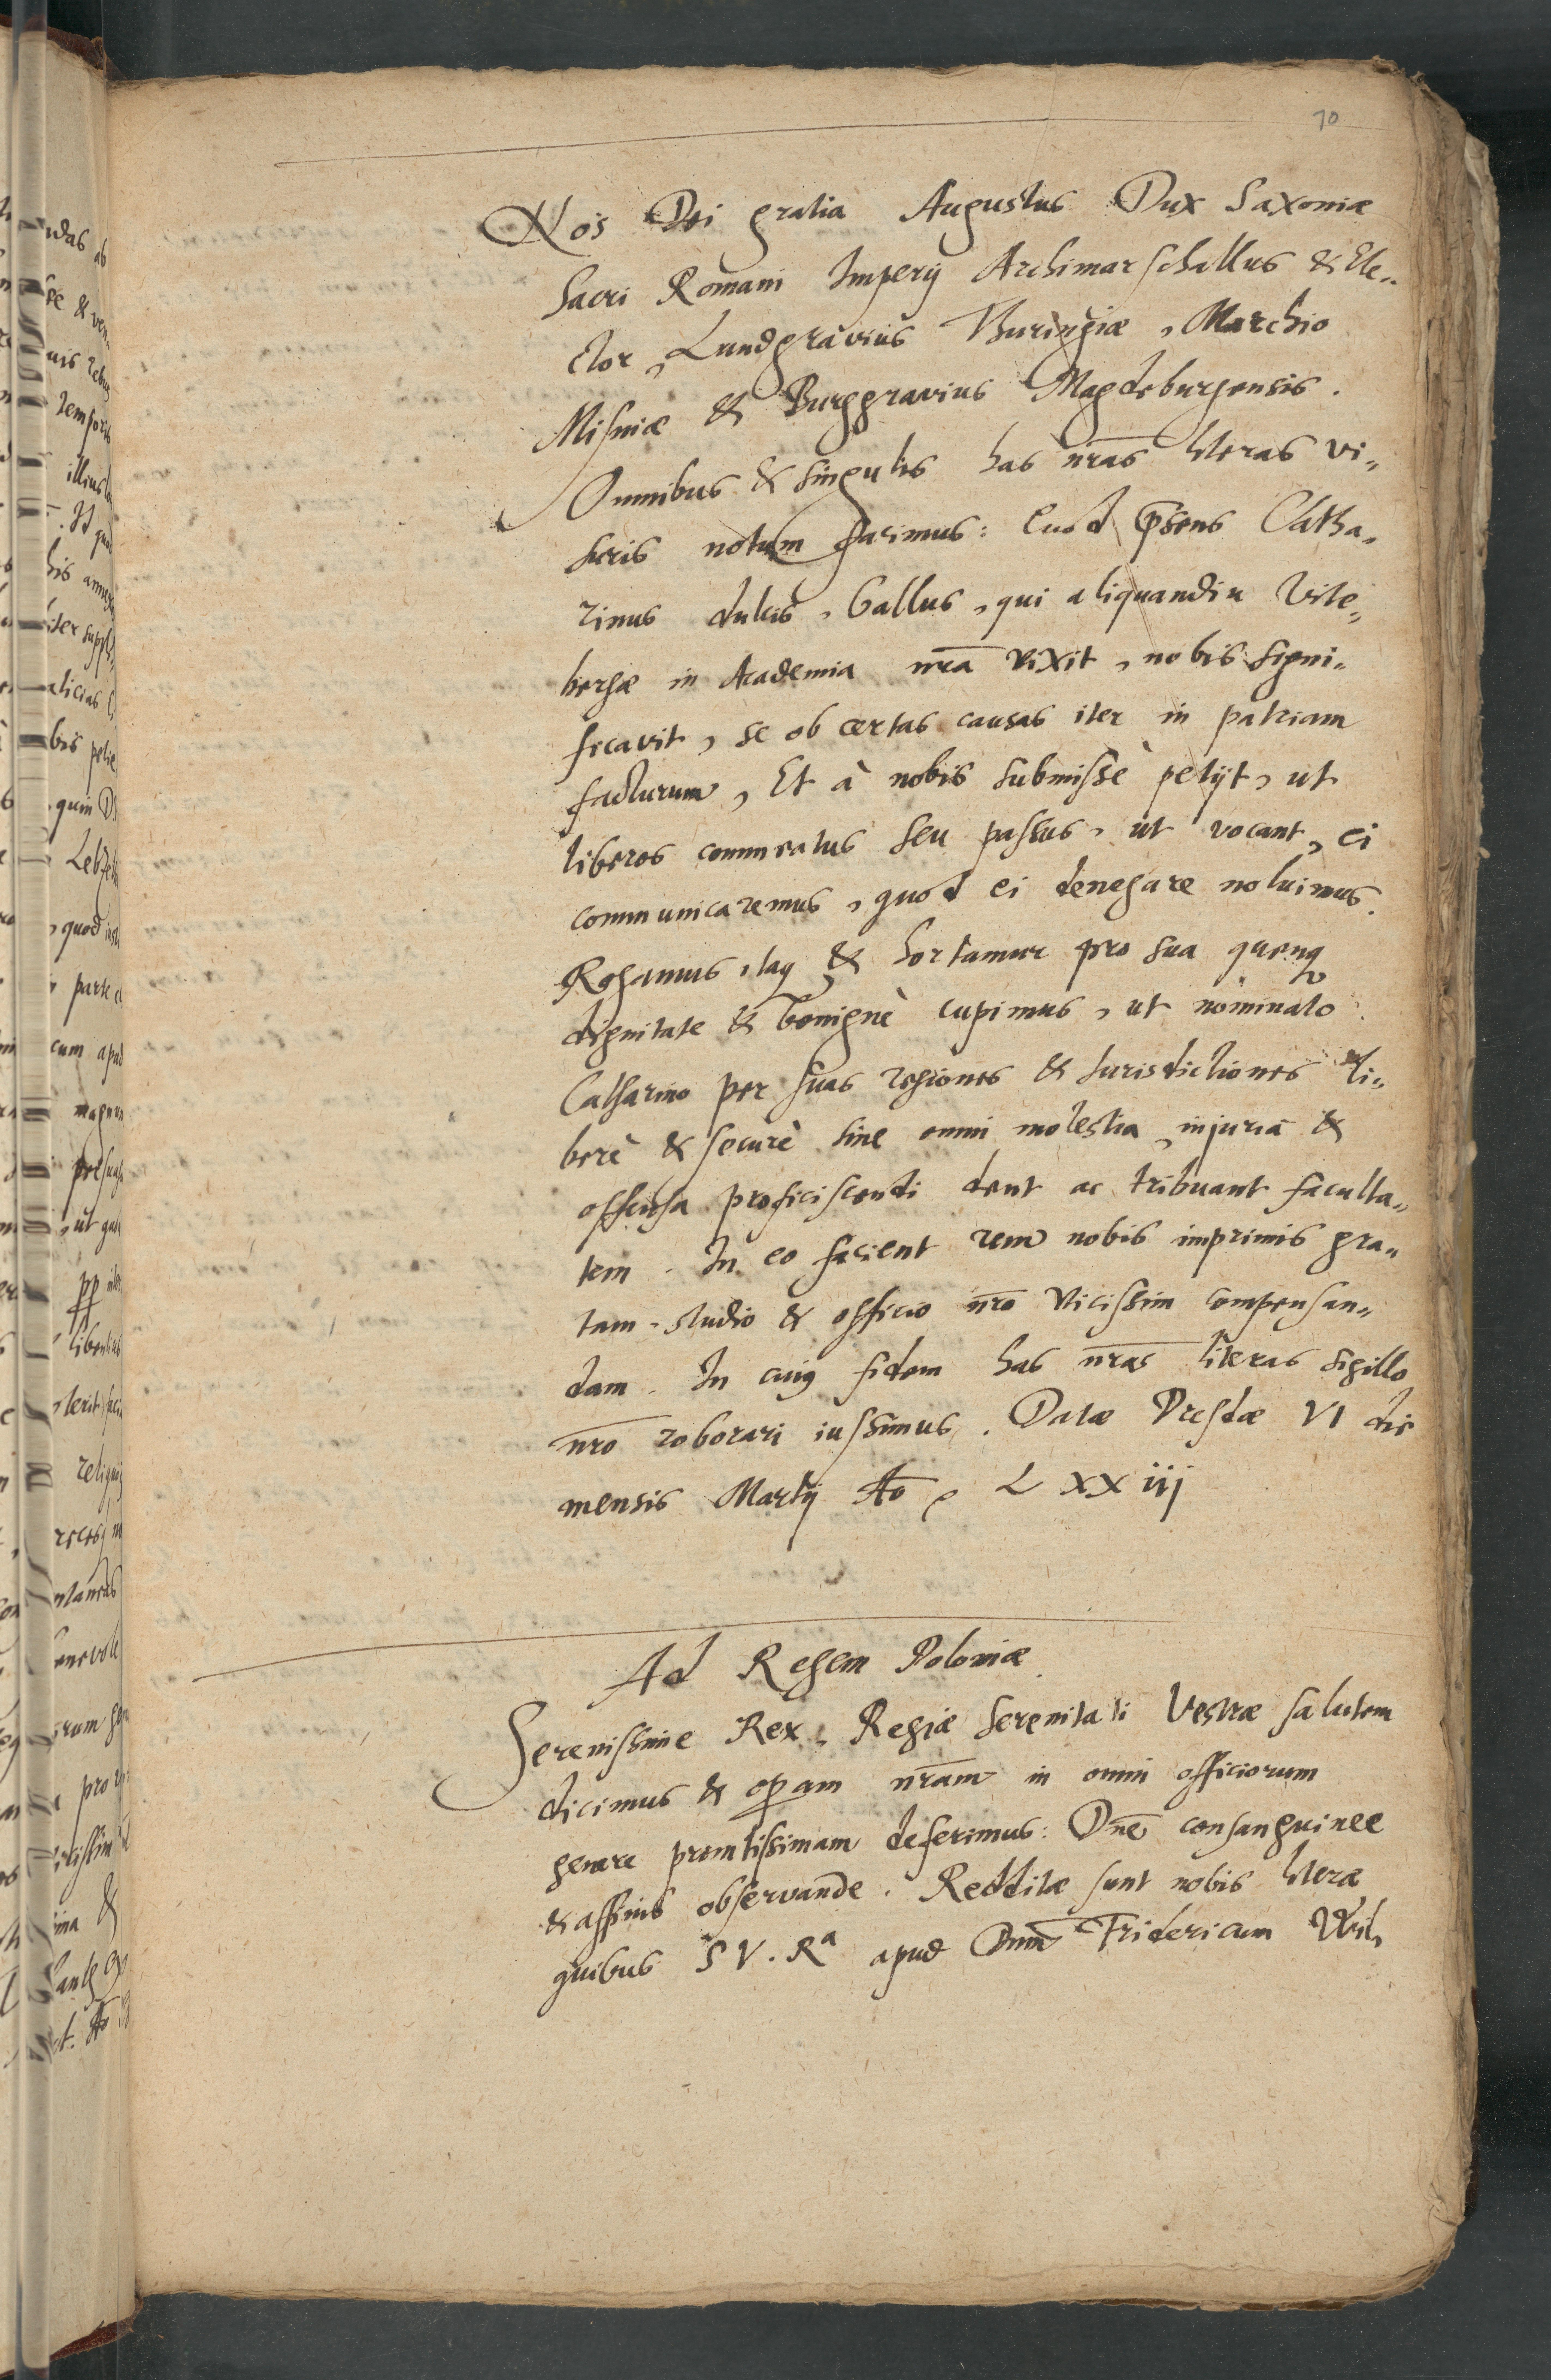 70
Nos Dei gratia Augustus Dux Saxoniæ
Sacri Romani Imperij Archimarschallus & Ele„
ctor, Landgravius Thuringiæ, Marchio
Misniæ & Burggravius Magdeburgensis.
Omnibus & singulis has nr̃as literas vi„
suris notum facimus: Quod p̃sens Catha„
rinus dulcis, Gallus, qui aliquandiu Vite„
bergæ in Academia nr̃a vixit, nobis signi„
ficavit, se ob certas causas iter in patriam
facturum, Et à nobis submissè petijt, ut
liberos commeatus seu passus, ut vocant, ei
communicaremus, quod ei denegare noluimus.
Rogamus itaq & hortamur pro sua quenq
dignitate & benignè cupimus, ut nominato
Catharino per suas regiones & Iurisdictiones li„
berè & securè sine omni molestia, injuria &
offensa proficiscendi dent ac tribuant faculta„
tem. In eo facient rem nobis imprimis gra„
tam studio & officio nr̃o vicissim compensan„
dam. In cuiꝰ fidem has nr̃as literas sigillo
nr̃o roborari iussimus. Datæ Dresdæ VI die
mensis Martij Ao, LXXiij
Ad Regem Poloniæ
Serenissime Rex, Regiæ Serenitati Vestræ salutem
dicimus & oꝑam nr̃am in omni officiorum
genere promtissimam deferimus: Dñe consanguinee
& affinis observande. Redditæ sunt nobis literæ
quibus S V. Rᵃ apud Dnm̃ Fridericum Wil„